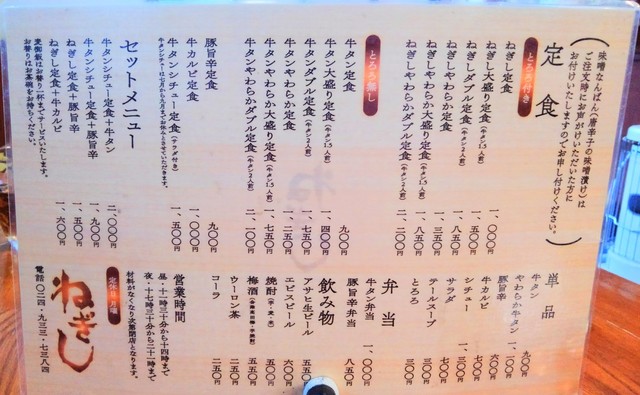 （味噌なんばん（唐辛子の味噌漬け）は
ご注文時にお声がけいただいた方に
お付けいたしますのでお申し付けください。）
定食
とろろ付き
ねぎし定食 一、〇〇〇円
ねぎし大盛り定食（牛タン1.5人前） 一、五〇〇円
ねぎしダブル定食（牛タン2人前） 一、八五〇円
ねぎしやわらか定食 一、三五〇円
ねぎしやわらか大盛り定食（牛タン1.5人前） 一、八五〇円
ねぎしやわらかダブル定食（牛タン2人前） 二、二〇〇円
とろろ無し
牛タン定食 九〇〇円
牛タン大盛り定食（牛タン1.5人前） 一、四〇〇円
牛タンダブル定食（牛タン2人前） 一、七五〇円
牛タンやわらか定食 一、二五〇円
牛タンやわらか大盛り定食（牛タン1.5人前） 一、七五〇円
牛タンやわらかダブル定食（牛タン2人前） 二、一〇〇円
豚旨辛定食 九〇〇円
牛カルビ定食 一、〇〇〇円
牛タンシチュー定食（サラダ付き） 一、五〇〇円
牛タンシチューは七月から九月までお休みとさせていただきます。
セットメニュー
牛タンシチュー定食＋牛タン 二、〇〇〇円
牛タンシチュー定食＋豚旨辛 一、九〇〇円
ねぎし定食＋豚旨辛 一、五〇〇円
ねぎし定食＋牛カルビ 一、六〇〇円
麦御飯はお替り一杯までサービスいたします。
お替りはお茶碗をお持ちください。
単品
牛タン 九〇〇円
やわらか牛タン 一、一〇〇円
豚旨辛 六〇〇円
牛カルビ 七〇〇円
シチュー 一、三〇〇円
サラダ 七〇〇円
テールスープ 三〇〇円
とろろ 三〇〇円
弁当
牛タン弁当 一、〇〇〇円
豚旨辛弁当 八五〇円
飲み物
アサヒ生ビール 五五〇円
エビスビール 六〇〇円
焼酎（芋・麦・米） 五〇〇円
梅酒 五五〇円
ウーロン茶 二五〇円
コーラ 二五〇円
営業時間
昼・十一時三十分から十四時まで
夜・十七時三十分から二十一時まで
材料がなくなり次第閉店となります。
定休日／火曜
ねぎし
電話 〇二四・九三三・七三八四